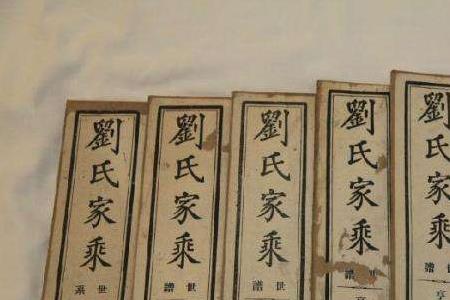 劉氏家乘
世系
劉氏家乘
世譜
劉氏家乘
世譜
劉氏家乘
世譜
劉氏家乘
譜
亨